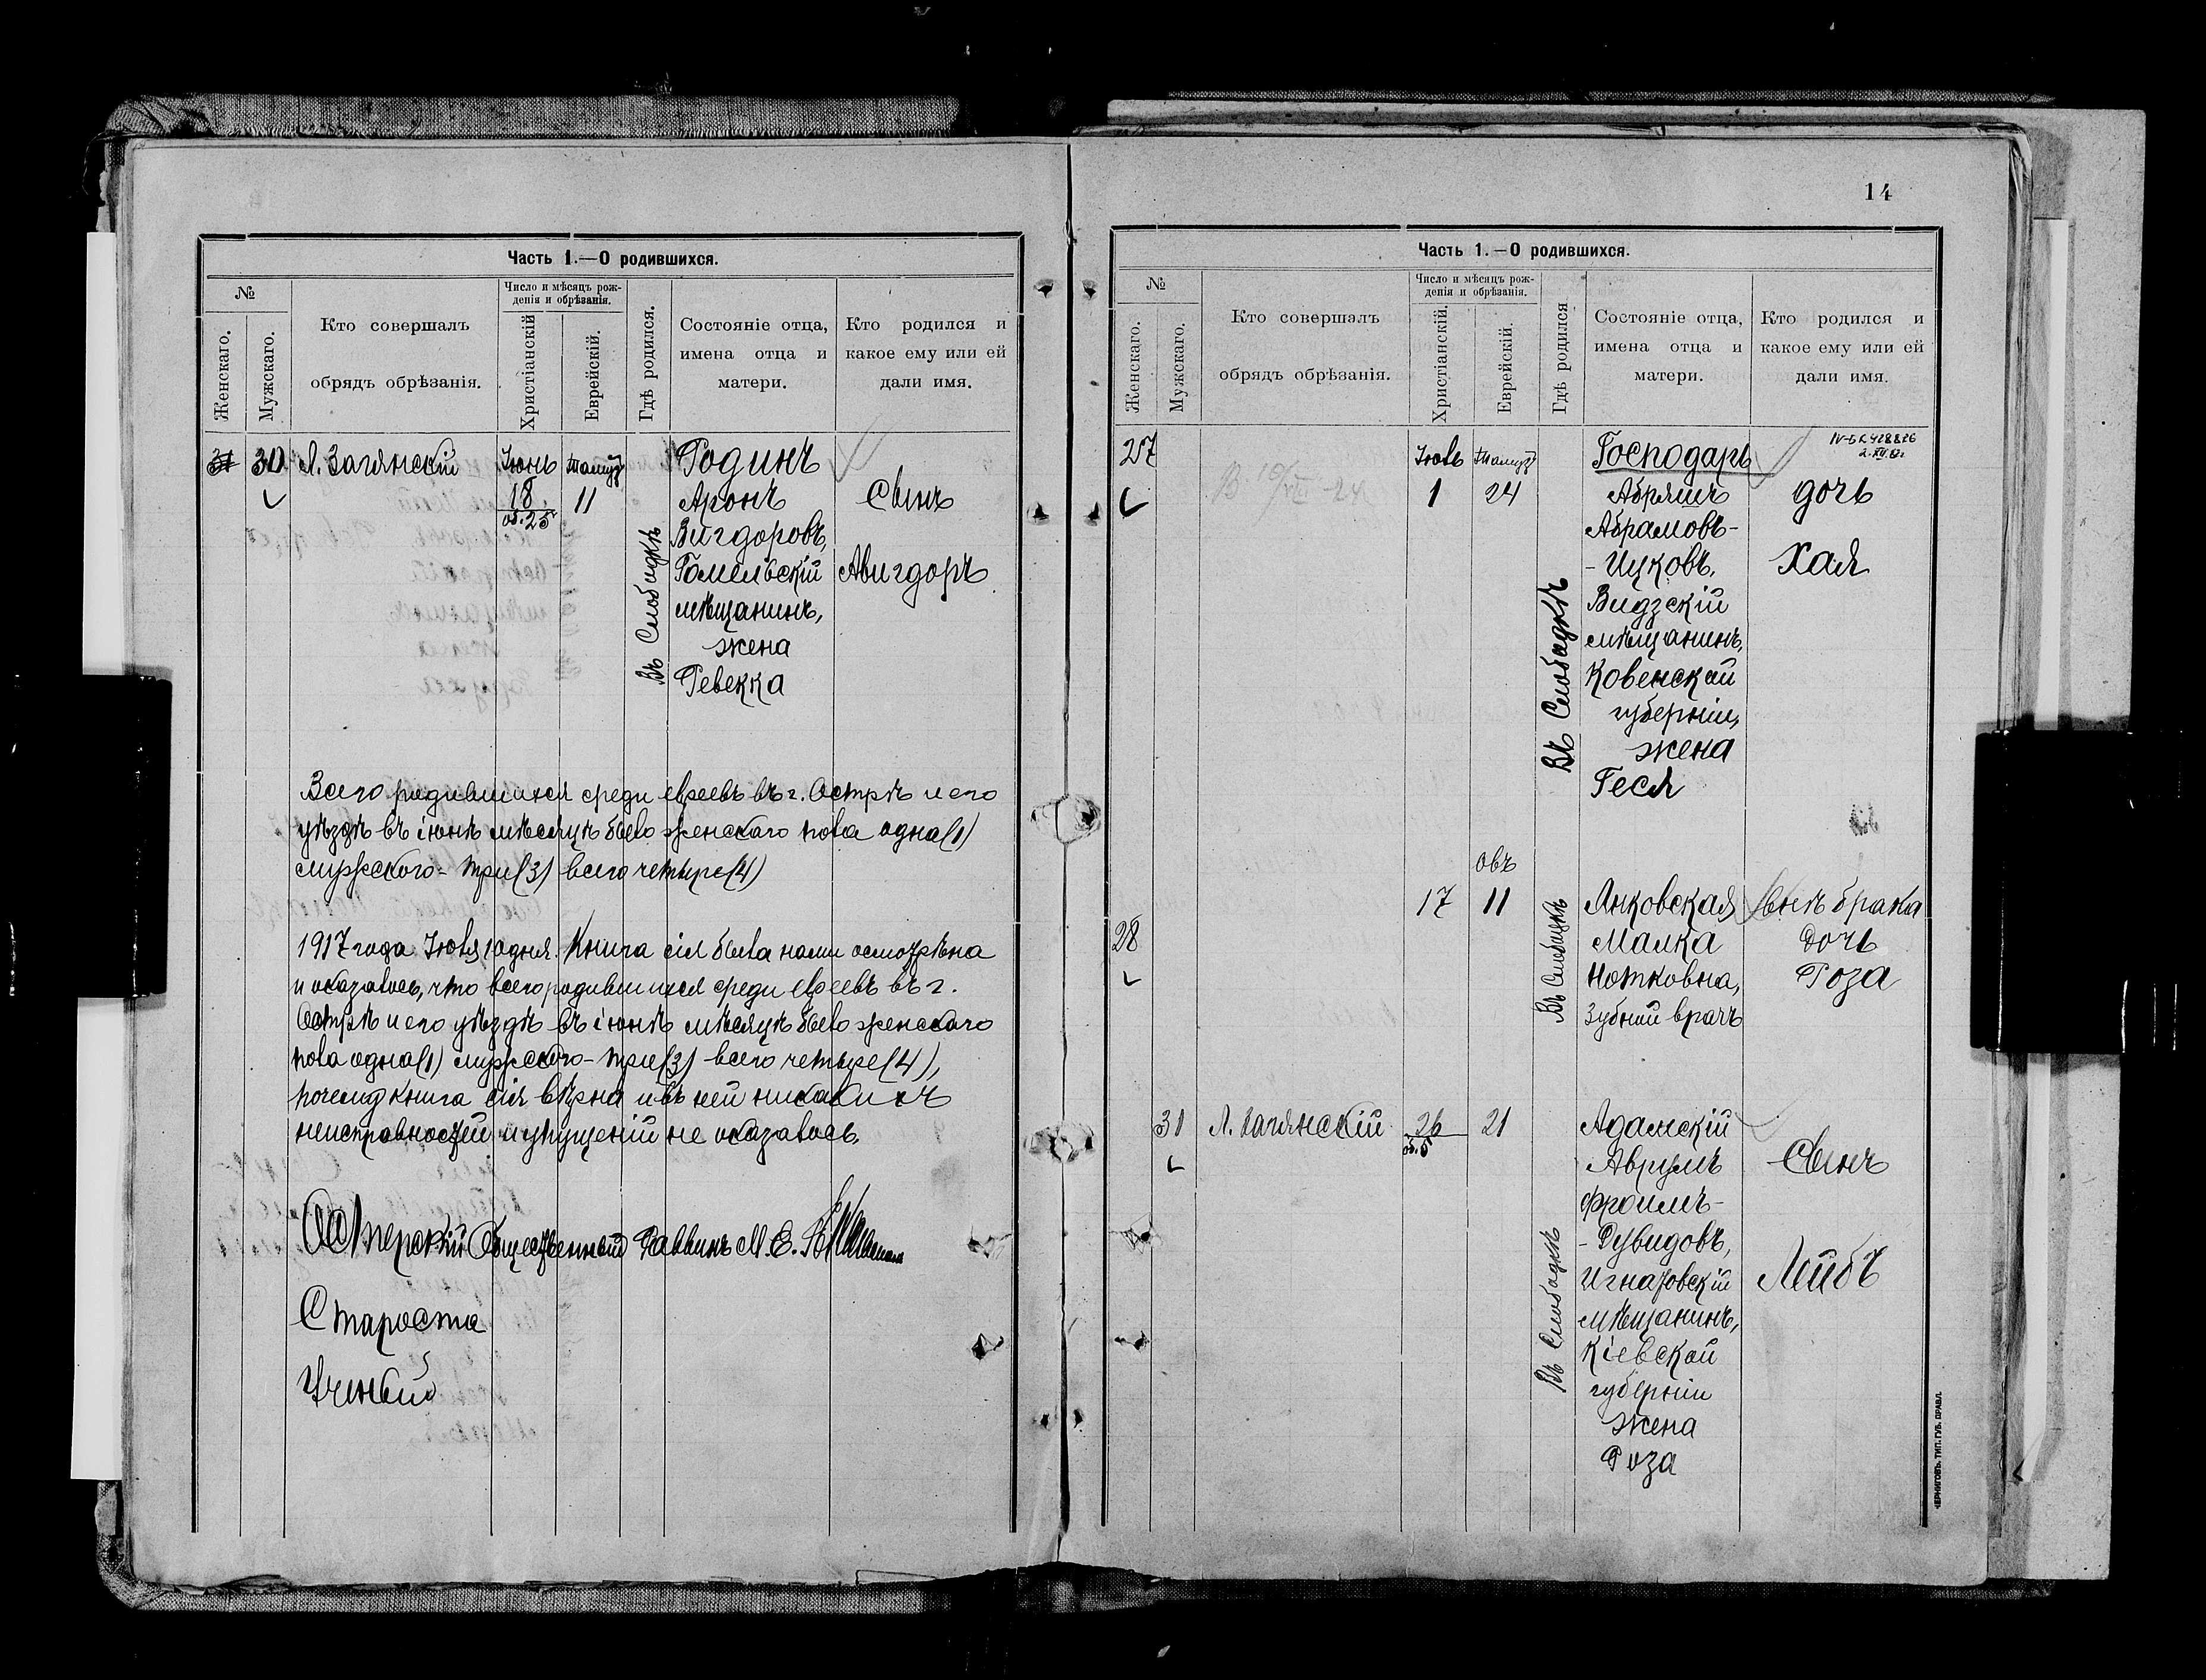 Часть 1.—О родившихся.
№
Женскаго.
Мужскаго.
Кто совершалъ
обрядъ обрѣзанія.
Число и мѣсяцъ рож-
денія и обрѣзанія.
Христіанскій
Еврейскій.
Гдѣ родился.
Состояніе отца,
имена отца и
матери.
Кто родился и
какое ему или ей
дали имя.
30 Л. Загянскій Іюнь Тамуз Родинъ
18 11 Аронъ Сынъ
об. 25
Вигдоровъ,
Гомельскій Авигдоръ
мѣщанинъ,
жена
Ревекка
Въ Слободкѣ
Всего родившихся среди евреевъ въ г. Острѣ и его
уѣздѣ въ іюнѣ мѣсяцѣ было женскаго пола одна (1)
мужского - три (3) всего четыре (4)
1917 года Іюля 10 дня. Книга сія была нами осмотрѣна
и оказалось, что всего родившихся среди евреевъ въ г.
Острѣ и его уѣздѣ въ іюнѣ мѣсяцѣ было женскаго
пола одна (1) мужского - три (3) всего четыре (4),
почему книга сія вѣрна и въ ней никакихъ
неисправностей и упущеній не оказалось.
Остерскій Общественный Раввинъ М. Е.
Староста
Ученый
14
Часть 1.—О родившихся.
№
Женскаго.
Мужскаго.
Кто совершалъ
обрядъ обрѣзанія.
Число и мѣсяцъ рож-
денія и обрѣзанія.
Христіанскій.
Еврейскій.
Гдѣ родился
Состояніе отца,
имена отца и
матери.
Кто родился и
какое ему или ей
дали имя.
27 Іюль Тамуз Господарь
1 24 Абрашъ дочь
Абрамовъ-
-Ицковъ, Хая
Видзскій
мѣщанинъ,
Ковенской
губерніи,
жена
Геся
Въ Слободкѣ
овъ
17 11 Янковская внѣ брака
28 Малка дочь
Нотковна, Роза
Зубной врачъ
Въ Слободкѣ
31 Л. Загянскій 26 21 Адамскій
об. 5
Аврумъ Сынъ
Фроимъ-
-Рувидовъ,
Игнатовскій Лейбъ
мѣщанинъ,
Кіевской
губерніи
жена
Роза
Въ Слободкѣ
ЧЕРНИГОВЪ. ТИП. ГУБ. ПРАВЛ.